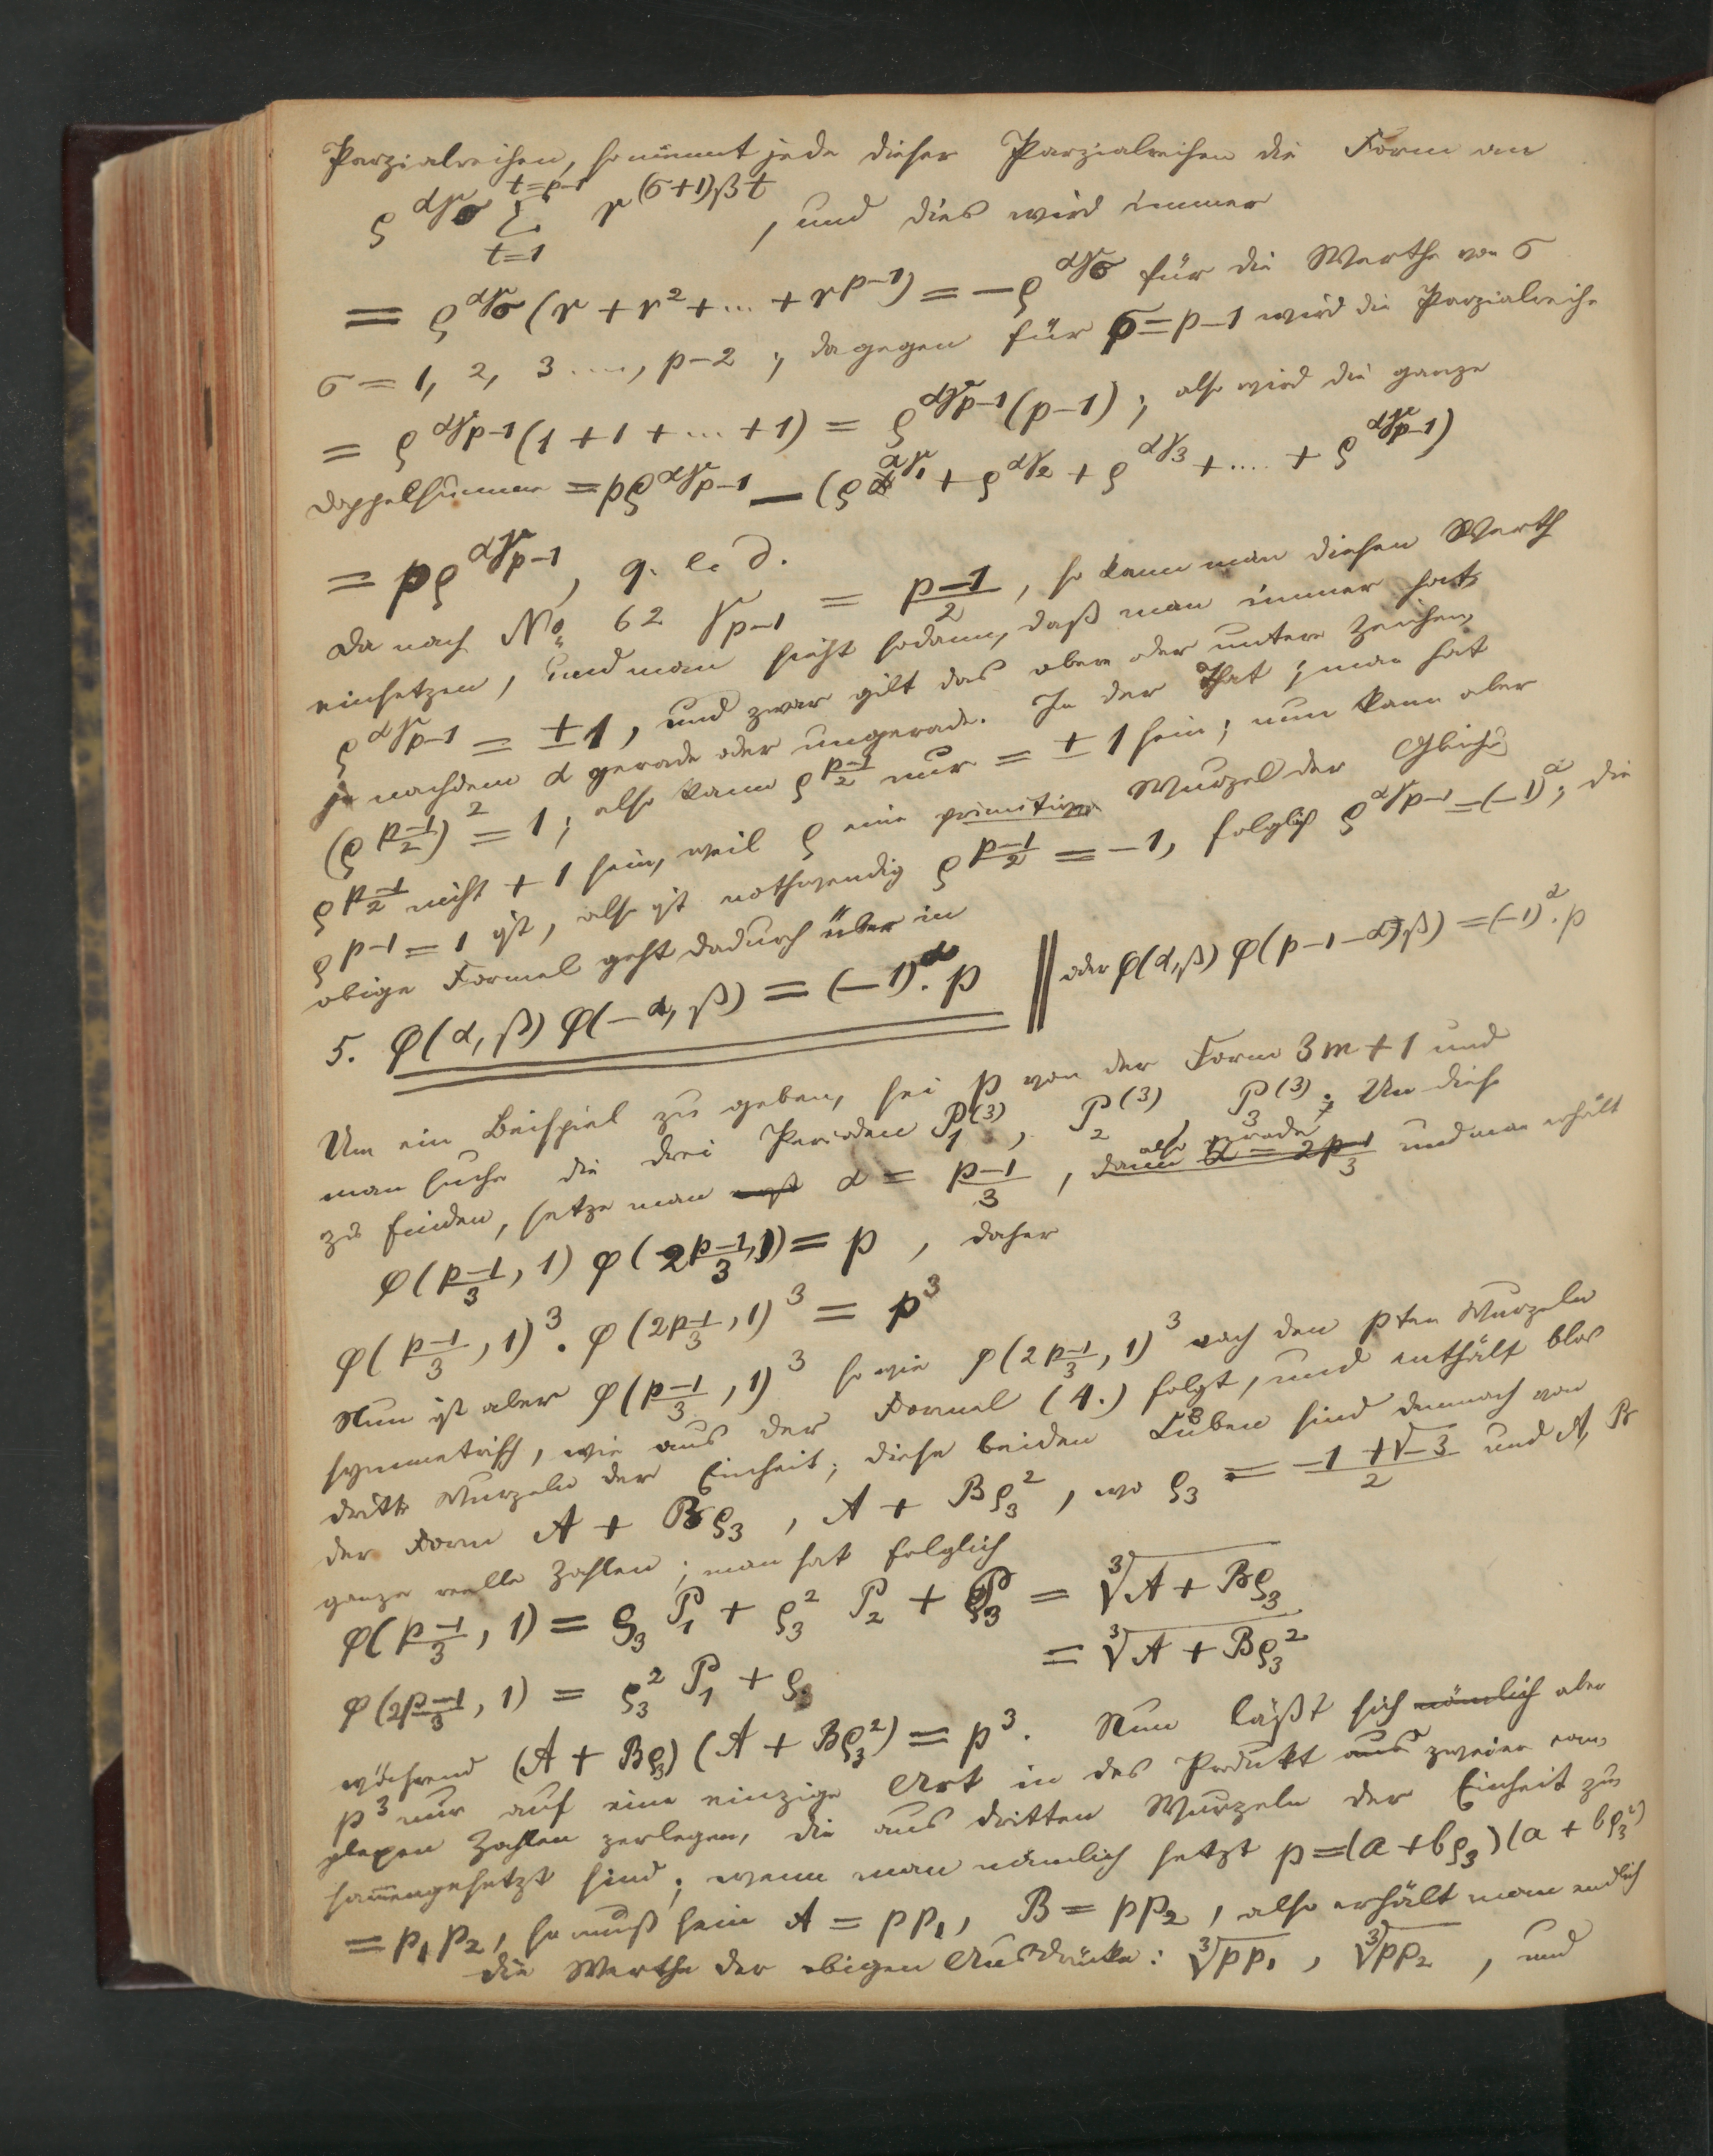 Parzialreihen, so nimmt jede dieser Parzialreihen die Form an
ϱ^{αγ_σ} Σ_{t=1}^{t=p-1} r^{(σ+1)βt}, und dies wird immer
= ϱ^{αγ_σ} (r + r^2 + ... + r^{p-1}) = -ϱ^{αγ_σ} für die Werthe von σ
σ = 1, 2, 3 ...., p-2; dagegen für σ = p-1 wird die Parzialreihe
= ϱ^{αγ_{p-1}} (1 + 1 + ... + 1) = ϱ^{αγ_{p-1}} (p-1); also wird die ganze
Doppelsumme = pϱ^{αγ_{p-1}} - (ϱ^{αγ_1} + ϱ^{αγ_2} + ϱ^{αγ_3} + .... + ϱ^{αγ_{p-1}})
= pϱ^{αγ_{p-1}}, q. e. d.
Da nach No. 62 γ_{p-1} = \frac{p-1}{2}, so kann man diesen Werth
einsetzen, und man sieht sodann, daß man immer hat
ϱ^{αγ_{p-1}} = ± 1, und zwar gilt das obere oder untere Zeichen,
je nachdem α gerade oder ungerade. In der That; man hat
(ϱ^{\frac{p-1}{2}})^2 = 1; also kann ϱ^{\frac{p-1}{2}} nur = ± 1 sein; nun kann aber
ϱ^{\frac{p-1}{2}} nicht + 1 sein, weil ϱ eine primitive Wurzel der Gleich
ϱ^{p-1} = 1 ist, also ist nothwendig ϱ^{\frac{p-1}{2}} = -1, folglich ϱ^{αγ_{p-1}} = (-1)^α; die
obige Formel geht dadurch über in
5. φ(α, β) φ(-α, β) = (-1)^α. p || oder φ(α, β) φ(p-1-α, β) = (-1)^α. p
Um ein Beispiel zu geben, sei p von der Form 3m + 1 und
man suche die drei Perioden P_1^{(3)}, P_2^{(3)}, P_3^{(3)}. Um diese
zu finden, setze man α = \frac{p-1}{3}, also gerade, und man erhält
φ(\frac{p-1}{3}, 1) φ(2\frac{p-1}{3}, 1) = p, daher
φ(\frac{p-1}{3}, 1)^3 . φ(2\frac{p-1}{3}, 1)^3 = p^3
Nun ist aber φ(\frac{p-1}{3}, 1)^3 so wie φ(2\frac{p-1}{3}, 1)^3 nach den pten Wurzeln
symmetrisch, wie aus der Formel (4.) folgt, und enthält blos
dritte Wurzeln der Einheit; diese beiden Kuben sind demnach von
der Form A + Bϱ_3, A + Bϱ_3^2, wo ϱ_3 = \frac{-1 + √-3}{2} und A, B
ganze reelle Zahlen; man hat folglich
φ(\frac{p-1}{3}, 1) = ϱ_3 P_1 + ϱ_3^2 P_2 + P_3 = ∛(A + Bϱ_3)
φ(2\frac{p-1}{3}, 1) = ϱ_3^2 P_1 + ϱ_3 = ∛(A + Bϱ_3^2)
während (A + Bϱ_3) (A + Bϱ_3^2) = p^3. Nun läßt sich nämlich aber
p^3 nur auf eine einzige Art in das Produkt aus zweier com-
plexen Zahlen zerlegen, die aus dritten Wurzeln der Einheit zu
sam̅engesetzt sind; wenn man nämlich setzt p = (a + bϱ_3) (a + bϱ_3^2)
= p_1 p_2, so muß sein A = pp_1, B = pp_2, also erhält man endlich
die Werthe der obigen Ausdrücke: ∛pp_1, ∛pp_2, und